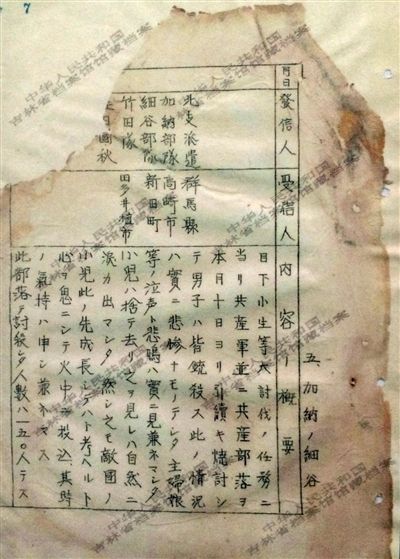 7
五、加納ノ細谷
月日
發信人
受信人
内容ノ概要
北支派遣
加納部隊
細谷部隊
竹田隊
田國秋
群馬縣
高崎市
新田町
田多井植市
目下小生等大討伐ノ任務ニ
当リ共産軍並ニ共産部落ヲ
本月十日ヨリ引續キ焼討シ
テ男子ハ皆銃殺ス此ノ情況
ハ實ニ悲惨ナモノデシタ主婦娘
等ノ泣声ト悲鳴ハ實ニ見兼ネマシタ
小児ハ捨テ去リ之ヲ見レハ自然ニ
涙カ出マシタ然シ之モ敵國ノ
小児此ノ先成長シテハト考ヘルト
心ヲ鬼ニシテ火中ニ投込其時
ノ氣持ハ申シ兼ネマス
此部落デ討殺シタ人数ハ一五〇人テス
中华人民共和国
吉林省档案馆馆藏档案